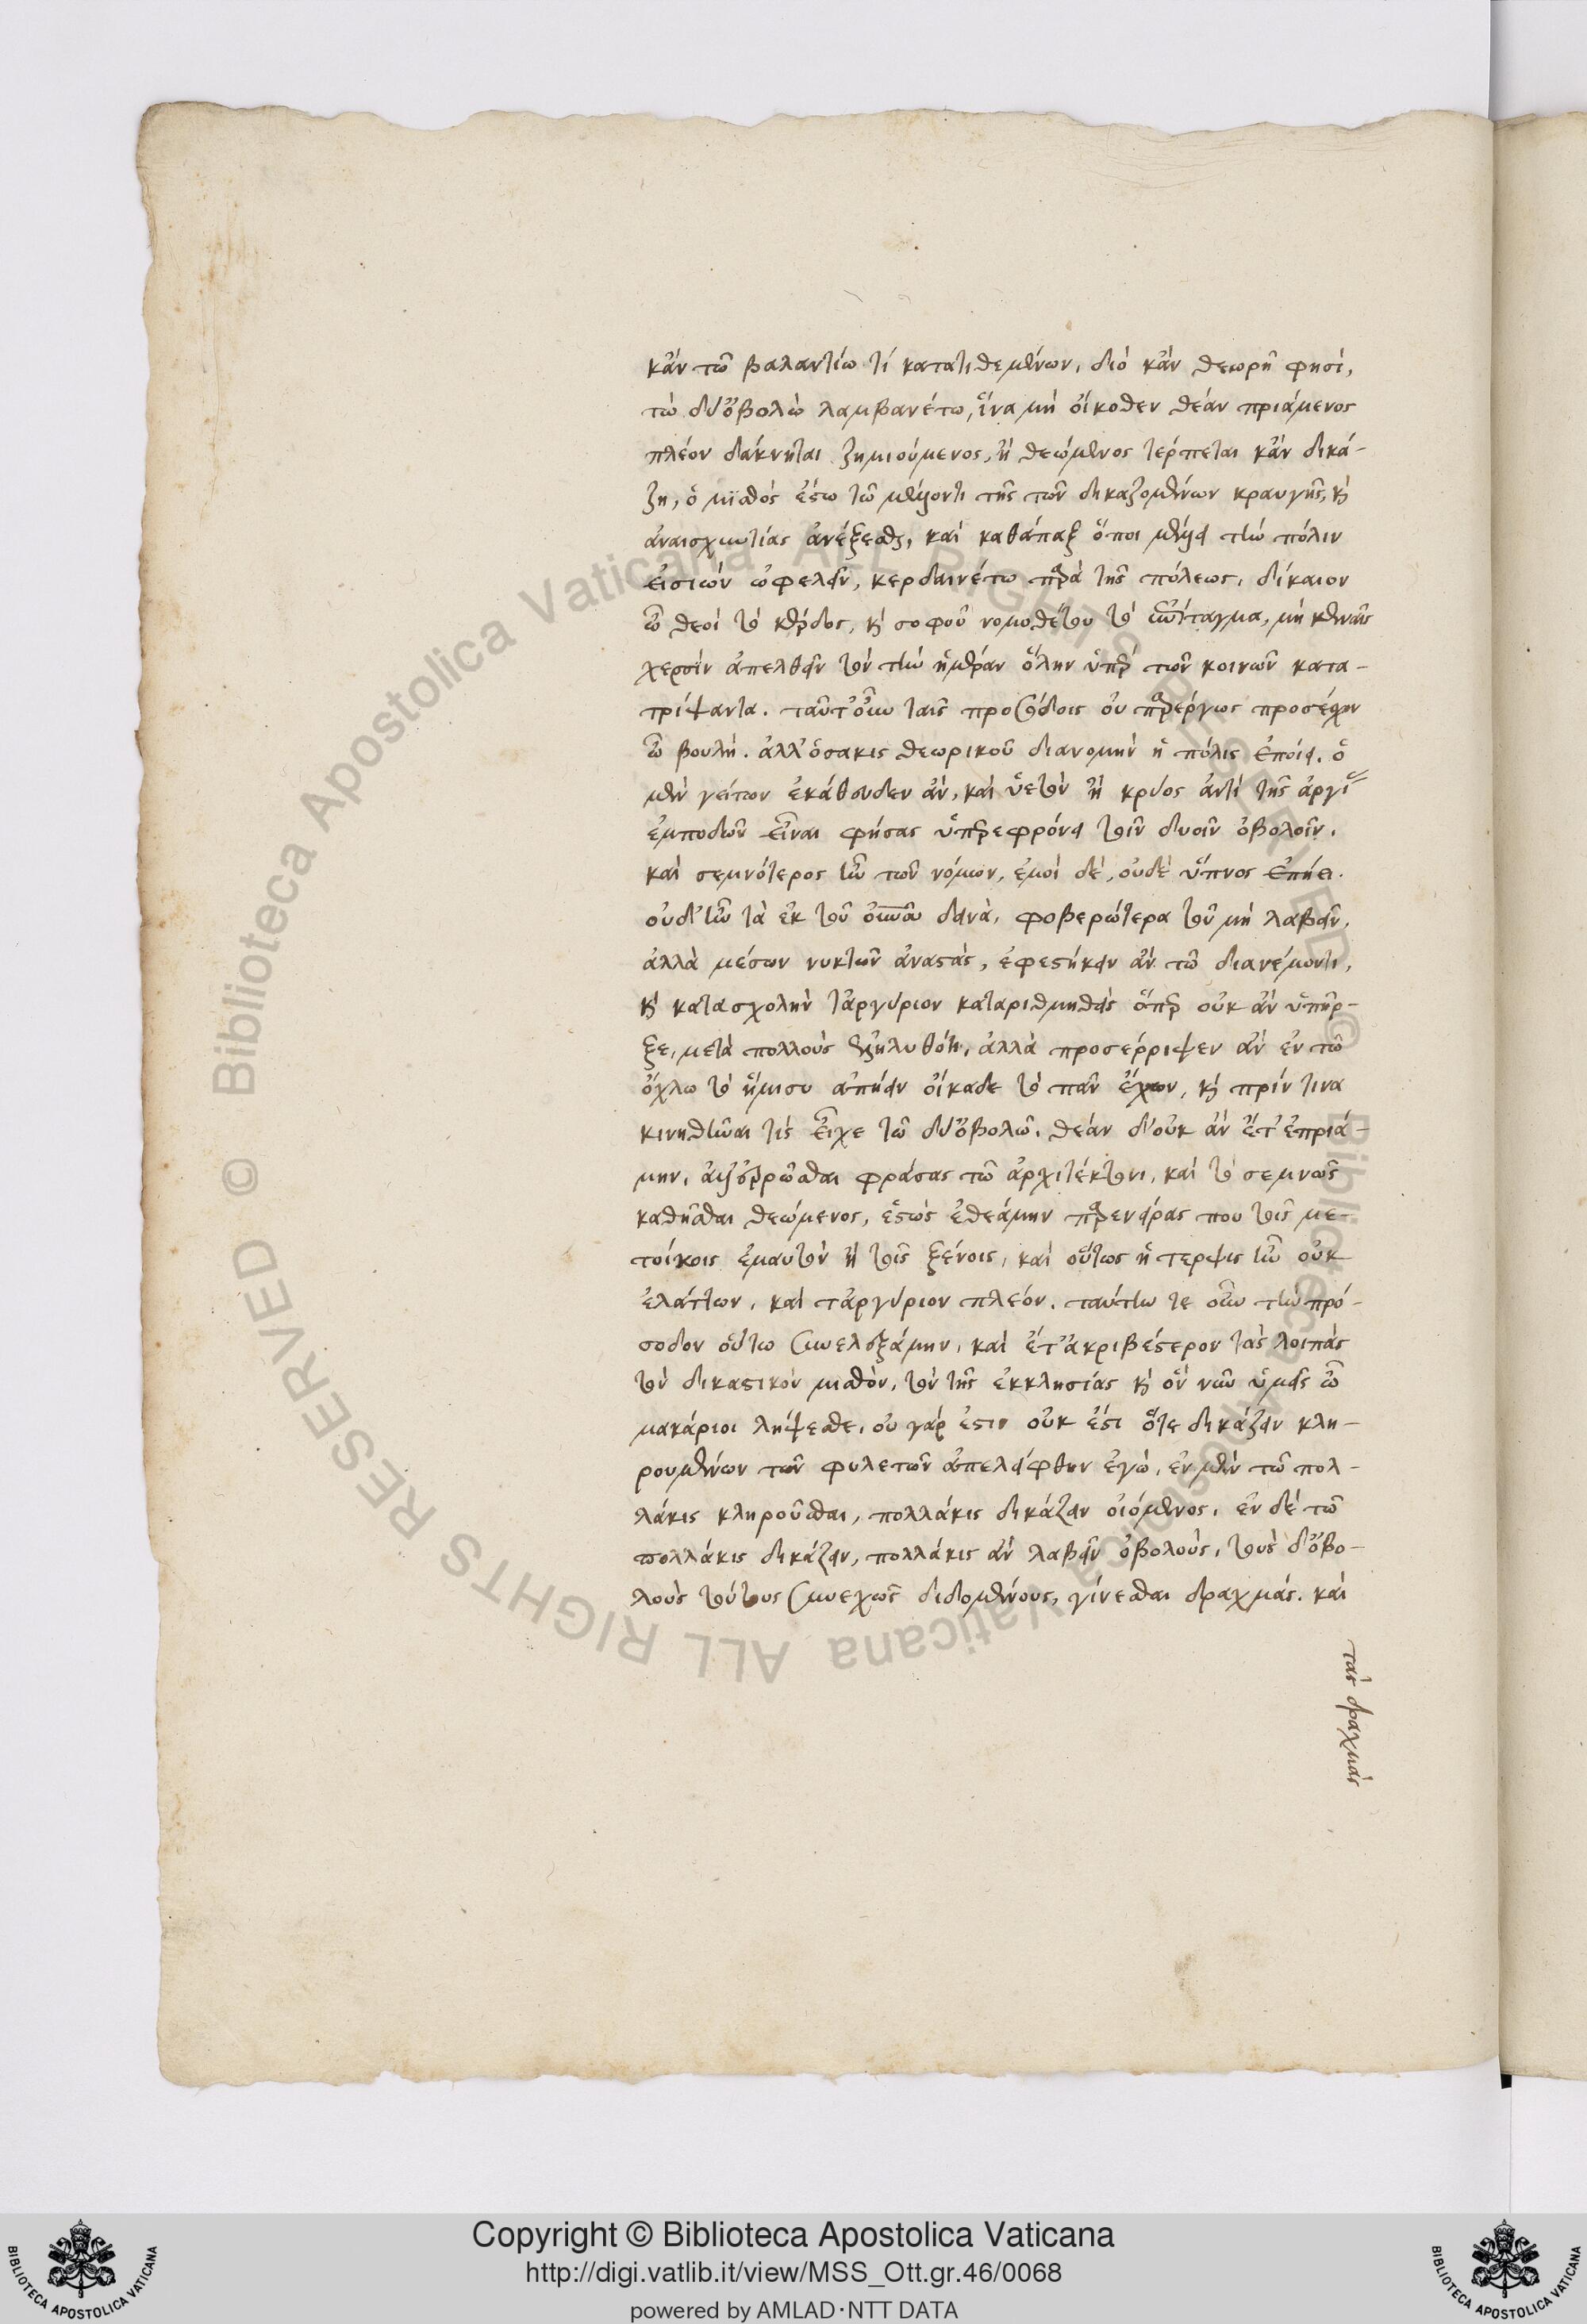 κἄν τῶ βαλαντίω τί κατατιθεμένων, διό κἄν θεωρῇ φησί,
τὼ δύ' ὀβολὼ λαμβανέτω, ἵνα μὴ οἴκοθεν θέαν πριάμενος
πλέον δάκνηται ζημιούμενος, ἢ θεώμενος τέρπεται κἄν δικά-
ζη, ὁ μισθός ἔστω τῶ μένοντι τῆς τῶν δικαζομένων κραυγῆς, καὶ
ἀναισχυντίας ἀνέξεσθαι, καὶ καθάπαξ ὅποι μὲν τὴν πόλιν
εἰσιών ὠφελεῖν, κερδαινέτω παρὰ τῆς πόλεως, δίκαιον
ὦ θεοὶ τὸ κέρδος, καὶ σοφοῦ νομοθέτου τὸ σύνταγμα, μὴ κεναῖς
χερσὶν ἀπελθεῖν τὸν τὴν ἡμέραν ὅλην ὑπὲρ τῶν κοινῶν κατα-
τρίψαντα. ταῦτ' οὖν ταῖς προσόδοις οὐ παρέργως προσέχων
ὦ βουλή. ἀλλ' ὁσάκις θεωρικοῦ διανομὴν ἡ πόλις ἐποίει. ὁ
μὲν γείτων ἐκάθευδεν ἄν, καὶ ὑετὸν ἢ κρύος ἀντὶ τῆς ἀργίας
ἐμποδὼν εἶναι φήσας ὑπερεφρόνει τοῖν δυοῖν ὀβολοῖν.
καὶ σεμνότερος ἦν τῶν νόμων, ἐμοὶ δέ, οὐδὲ ὕπνος ἐπῄει.
οὐδ' ἦν τὰ ἐκ τοῦ οὐρανοῦ δεινὰ, φοβερώτερα τοῦ μὴ λαβεῖν,
ἀλλὰ μέσων νυκτῶν ἀναστάς, ἐφεστήκειν ἂν τῶ διανέμοντι,
καὶ κατασχολὴν τἀργύριον καταριθμηθεὶς ὅπερ οὐκ ἂν ὑπῆρ-
ξε, μετὰ πολλοὺς ἐξηλυθότι, ἀλλὰ προσέρριψεν ἂν ἐν τῶ
ὄχλω τὸ ἥμισυ ἀπῄειν οἴκαδε τὸ πᾶν ἔχων, καὶ πρίν τινα
κινηθῆναι τὶς εἶχε τὼ δύ' ὀβολώ. θέαν δ' οὐκ ἂν ἔτ' ἐπριά-
μην, ἀλλ' ἐρρῶσθαι φράσας τῶ ἀρχιτέκτονι, καὶ τὸ σεμνῶς
καθῆσθαι θεώμενος, ἑστὼς ἐθεάμην παρενείρας που τοῖς με-
τοίκοις ἐμαυτὸν ἢ τοῖς ξένοις, καὶ οὕτως ἡ τέρψις ἦν οὐκ
ἐλάττων, καὶ τἀργύριον πλεόν. ταύτην τε οὖν τὴν πρό-
σοδον οὕτω συνελεξάμην, καὶ ἔτ' ἀκριβέστερον τὰς λοιπὰς
τὸν δικαστικὸν μισθὸν, τὸν τῆς ἐκκλησίας καὶ ὃν νῦν ὑμεῖς ὦ
μακάριοι λήψεσθε. οὐ γάρ ἐστιν οὐκ ἔστι ὅτε δικάζειν κλη-
ρουμένων τῶν φυλετῶν ἀπελείφθην ἐγώ, ἐν μὲν τῶ πολ-
λάκις κληροῦσθαι, πολλάκις δικάζειν οἰόμενος. ἐν δὲ τῶ
πολλάκις δικάζειν, πολλάκις ἂν λαβεῖν ὀβολούς, τοὺς δ' ὀβο-
λοὺς τούτους συνεχῶς διδομένους, γίνεσθαι δραχμάς. καὶ
τὰς δραχμὰς
Copyright © Biblioteca Apostolica Vaticana
http://digi.vatlib.it/view/MSS_Ott.gr.46/0068
powered by AMLAD·NTT DATA